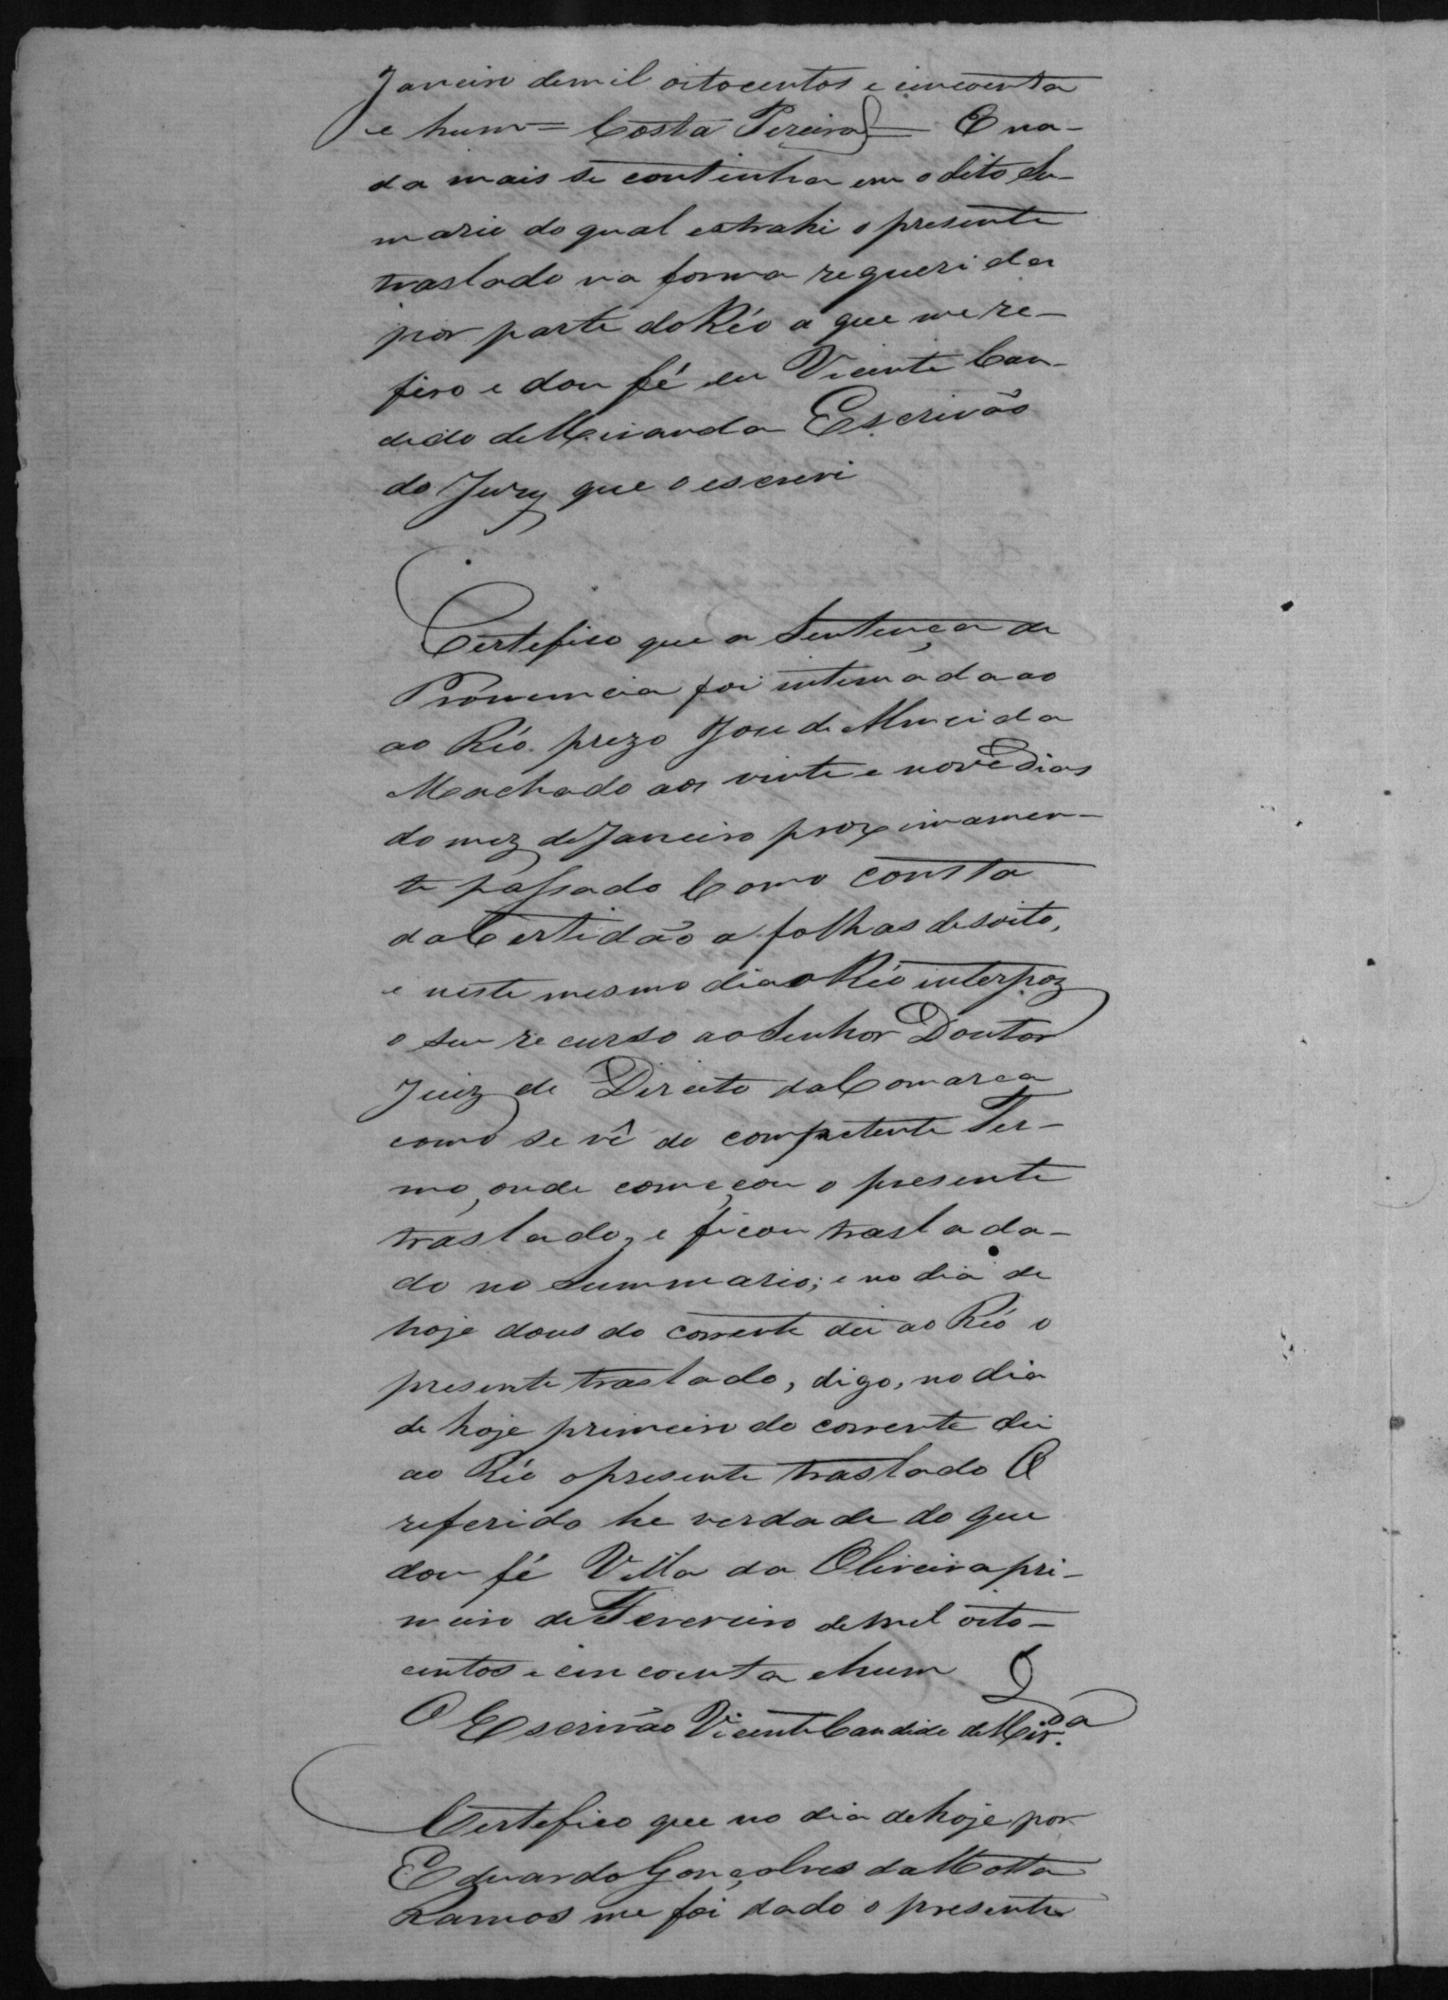 Janeiro demil oitocentos e cincoenta
e hum = Costa Pereira = E na-
da mais se continha em o dito Su-
mario do qual estrahi o presente
traslado na forma requerida
por parte do Réo a que me re-
firo e dou fé eu Vicente Can-
dido de Miranda Escrivão
do Jury que o escrevi
Certefico que a Sentença de
Pronuncia foi intimada ao
ao Réo prezo Jose de Almeida
Machado aos vinte e nove Dias
do mez de Janeiro proximamen-
te passado Como consta
da Certidão a folhas desoito,
e neste mesmo dia o Réo interpoz
o seu recurso ao Senhor Doutor
Juiz de Direito da Comarca
como se vê do competente Ter-
mo, onde começou o presente
traslado, e ficou traslada-
do no Summario; e no dia de
hoje dous do corrente dei ao Réo o
presente traslado, digo, no dia
de hoje primeiro do corrente dei
ao Réo o presente traslado O
referido he verdade do que
dou fé Villa da Oliveira pri-
meiro de Fevereiro de mil oito-
centos e cincoenta e hum
O Escrivão Vicente Candido de Mir.da
Certefico que no dia de hoje por
Eduardo Gonçalves da Motta
Ramos me foi dado o presente